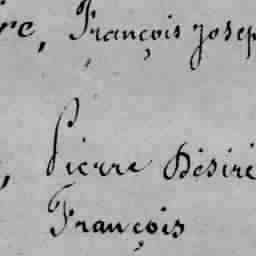 re, François Josep
, Pierre Désiré
François